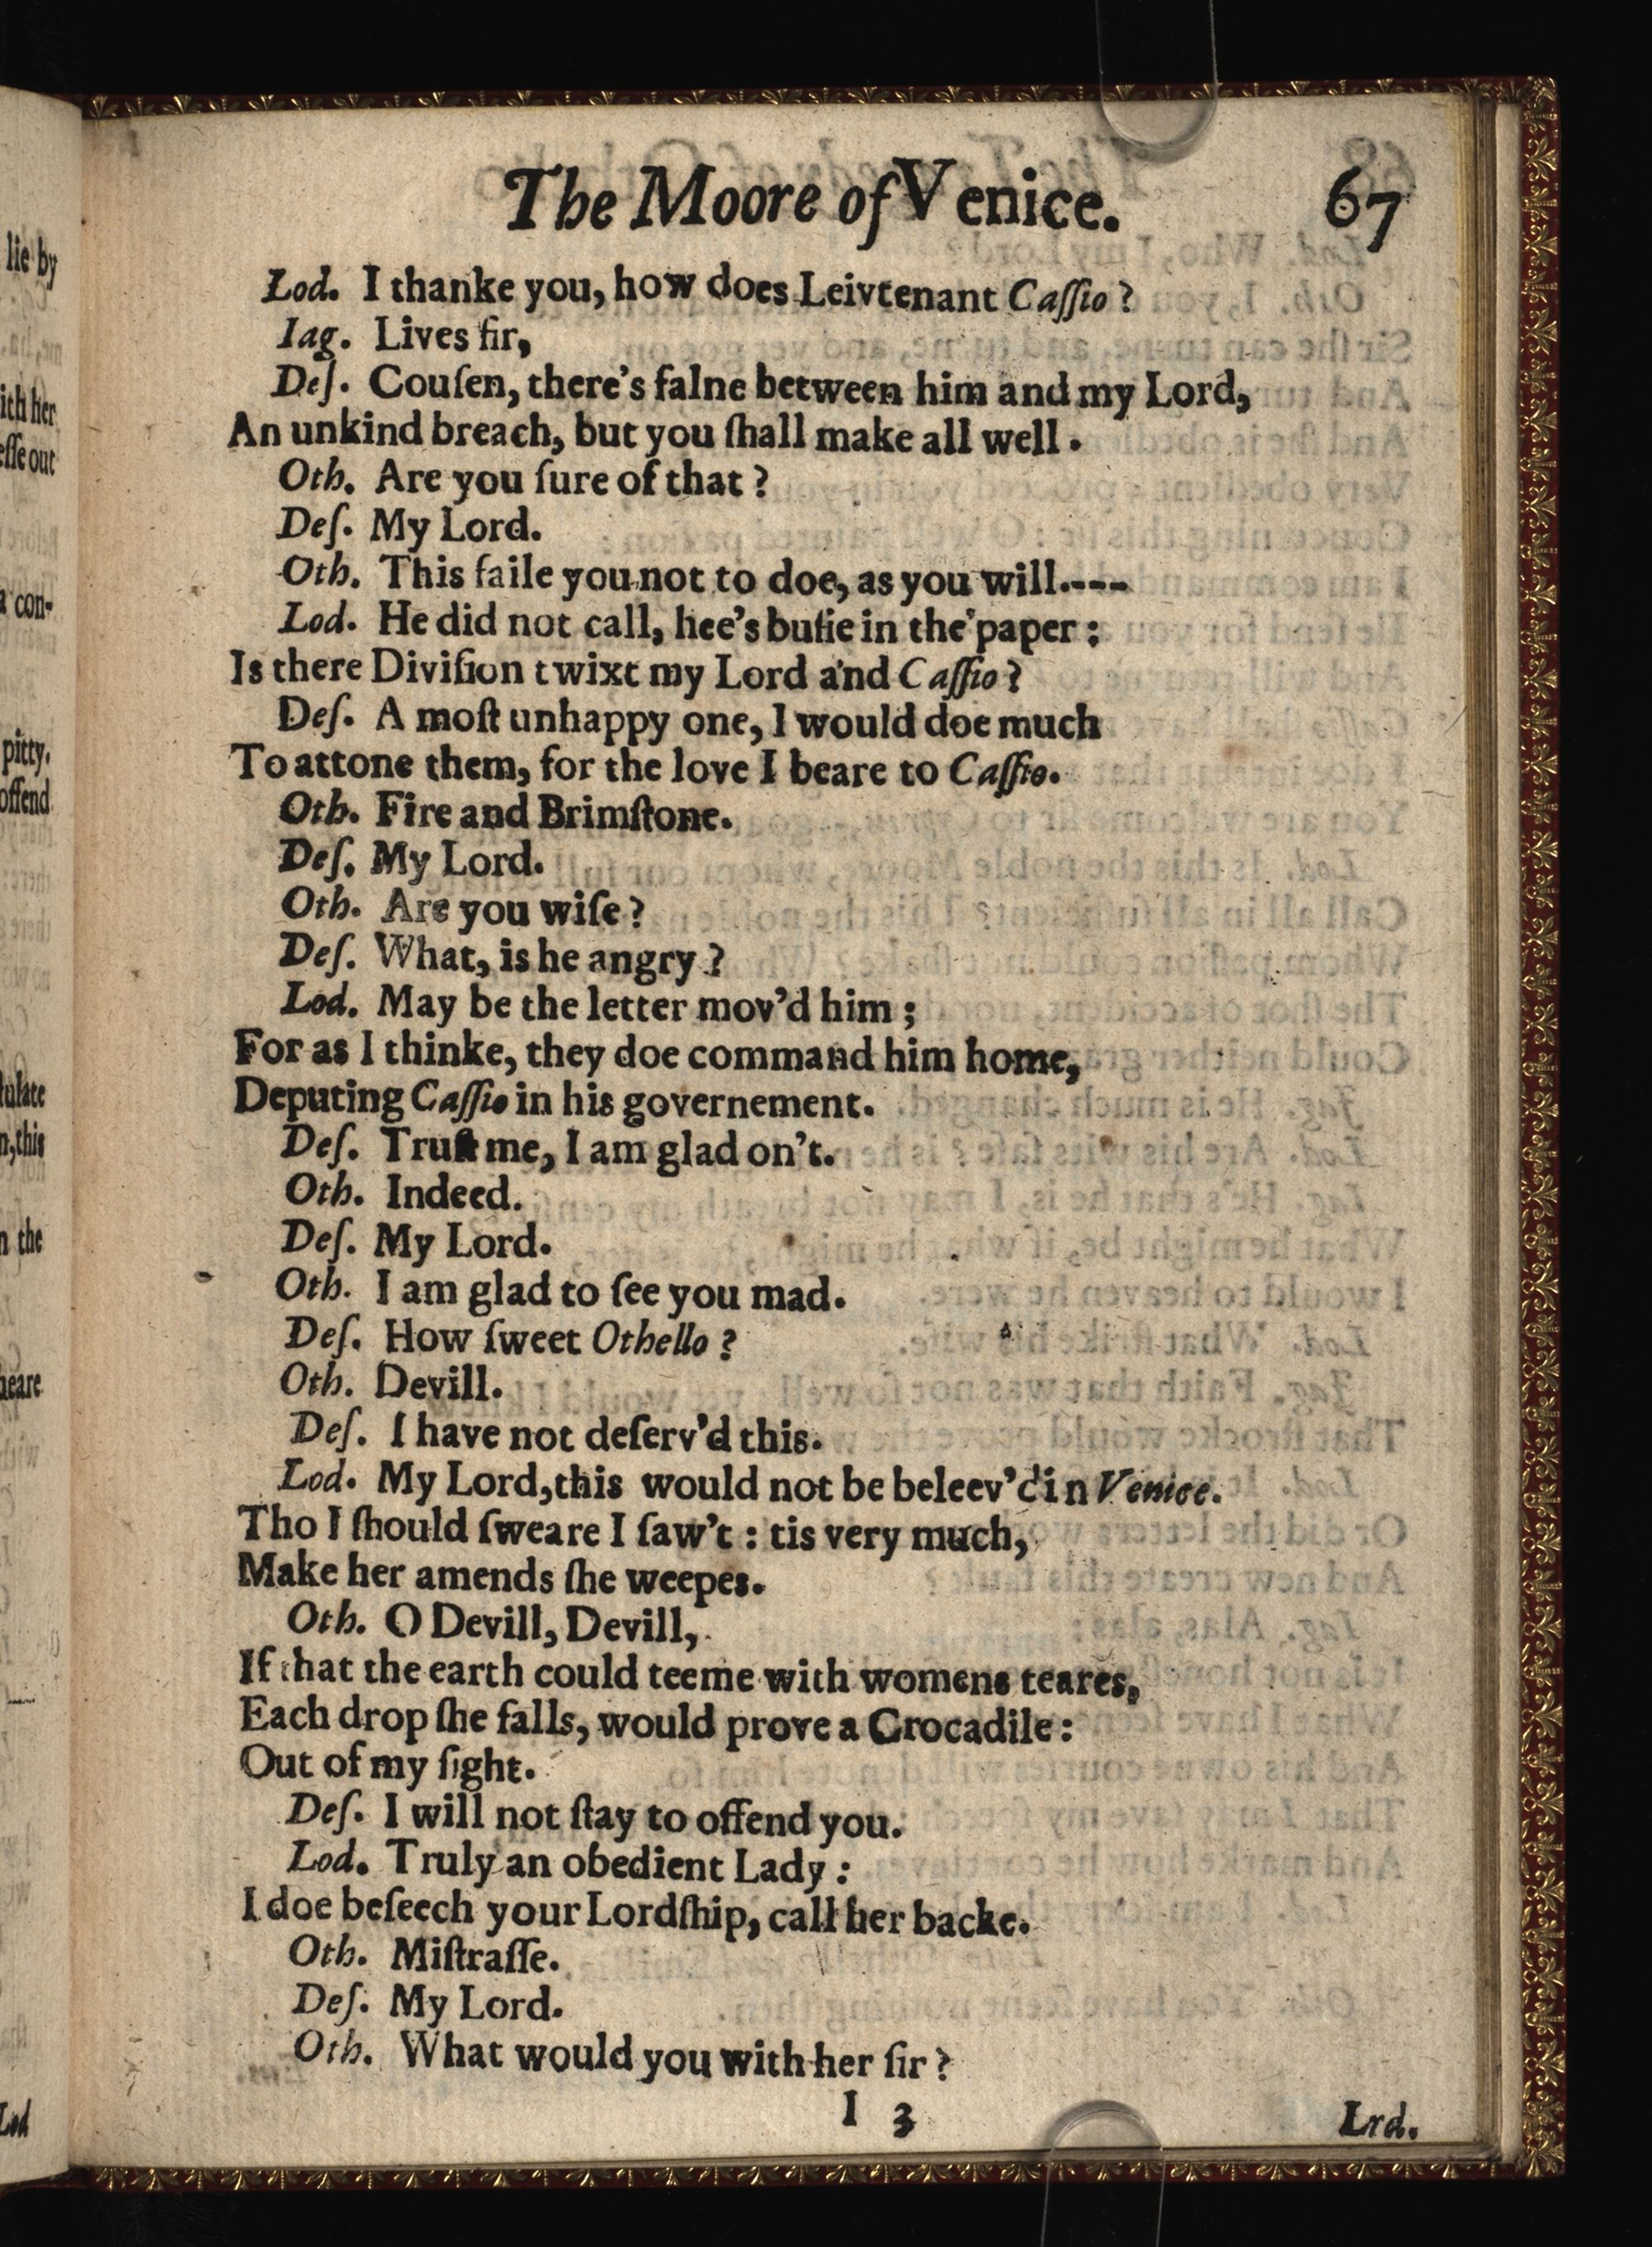 The Moore of Venice. 67
Lod. I thanke you, how does Leivtenant Caſſio?
Iag. Lives ſir,
Deſ. Couſen, there's falne between him and my Lord,
An unkind breach, but you ſhall make all well.
Oth. Are you ſure of that?
Deſ. My Lord.
Oth. This faile you not to doe, as you will.----
Lod. He did not call, hee's buſie in the paper;
Is there Diviſion twixt my Lord and Caſſio?
Deſ. A moſt unhappy one, I would doe much
To attone them, for the love I beare to Caſſio.
Oth. Fire and Brimſtone.
Deſ. My Lord.
Oth. Are you wiſe?
Deſ. What, is he angry?
Lod. May be the letter mov'd him;
For as I thinke, they doe command him home,
Deputing Caſſio in his governement.
Deſ. Truſt me, I am glad on't.
Oth. Indeed.
Deſ. My Lord.
Oth. I am glad to ſee you mad.
Deſ. How ſweet Othello?
Oth. Devill.
Deſ. I have not deſerv'd this.
Lod. My Lord,this would not be beleev'd in Venice.
Tho I ſhould ſweare I ſaw't: tis very much,
Make her amends ſhe weepes.
Oth. O Devill, Devill,
If that the earth could teeme with womens teares,
Each drop ſhe falls, would prove a Crocadile:
Out of my ſight.
Deſ. I will not ſtay to offend you.
Lod. Truly an obedient Lady:
I doe beſeech your Lordſhip, call her backe.
Oth. Miſtraſſe.
Deſ. My Lord.
Oth. What would you with her ſir?
I 3 Lrd.
lie by
ith her
eſſe out
con-
pitty.
offend
n,this
n the
heare
Lod